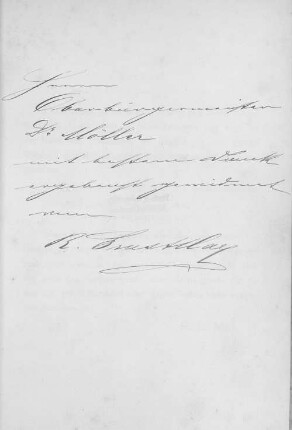 Herrn
Oberbürgermeister
Dr Möller
mit bestem Dank
ergebenst gewidmet
vom
R. Ernst May